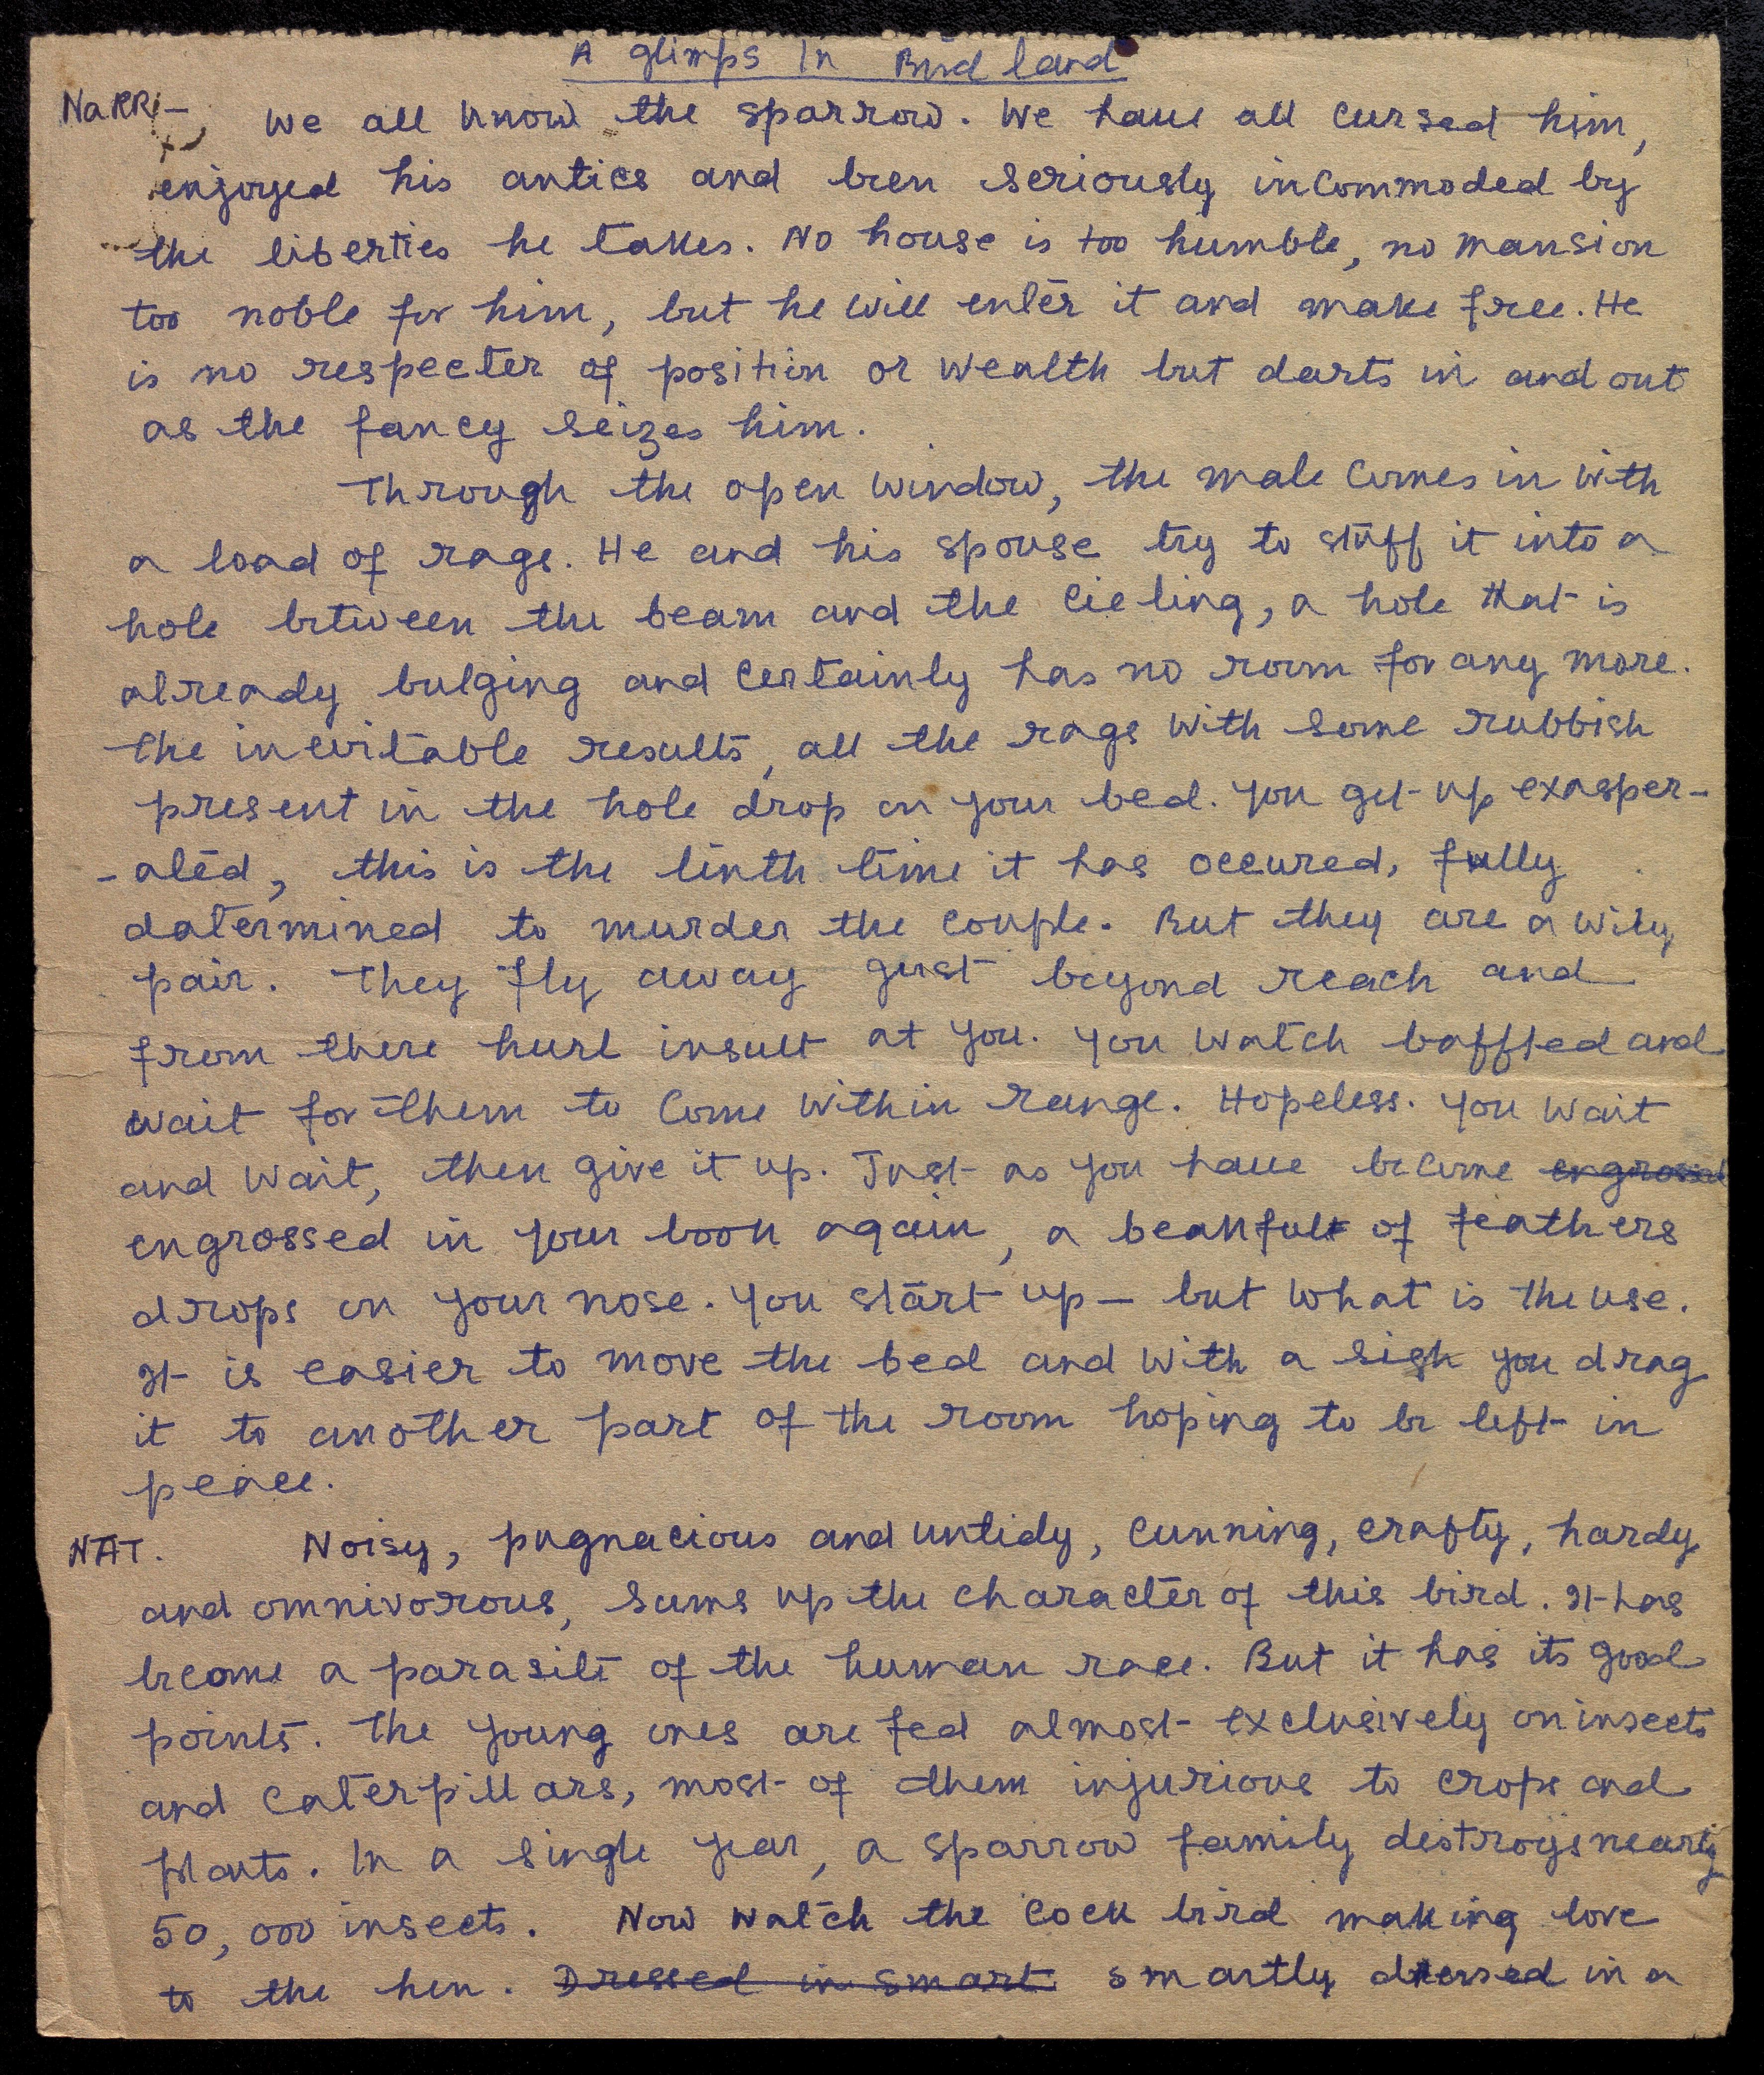 A glimps In Bird land
NaRR- We all know the sparrow. We have all cursed him,
enjoyed his antics and been seriously incommoded by
the liberties he takes. No house is too humble, no mansion
too noble for him, but he will enter it and make free. He
is no respecter of position or wealth but darts in and out
as the fancy seizes him.
Through the open window, the male comes in with
a load of rags. He and his spouse try to stuff it into a
hole between the beam and the cieling, a hole that is
already bulging and certainly has no room for any more.
The inevitable results, all the rags with some rubbish
present in the hole drop on your bed. You get up exasper-
-ated, this is the tenth time it has occured, fully
datermined to murder the couple. But they are a wily
pair. They fly away just beyond reach and
from there hurl insult at you. You watch baffled and
wait for them to come within range. Hopeless. You wait
and wait, then give it up. Just as you have become engrossed
engrossed in your book again, a beakfull of feathers
drops on your nose. You start up - but what is the use.
It is easier to move the bed and with a sigh you drag
it to another part of the room hoping to be left in
peace.
NAT. Noisy, pugnacious and untidy, cunning, crafty, hardy
and omnivorous, sums up the character of this bird. It has
become a parasite of the human race. But it has its good
points. The young ones are fed almost exclusively on insects
and caterpillars, most of them injurious to crops and
plants. In a single year, a sparrow family destroys nearly
50,000 insects. Now watch the cock bird making love
to the hen. Dressed in smart smartly dressed in a